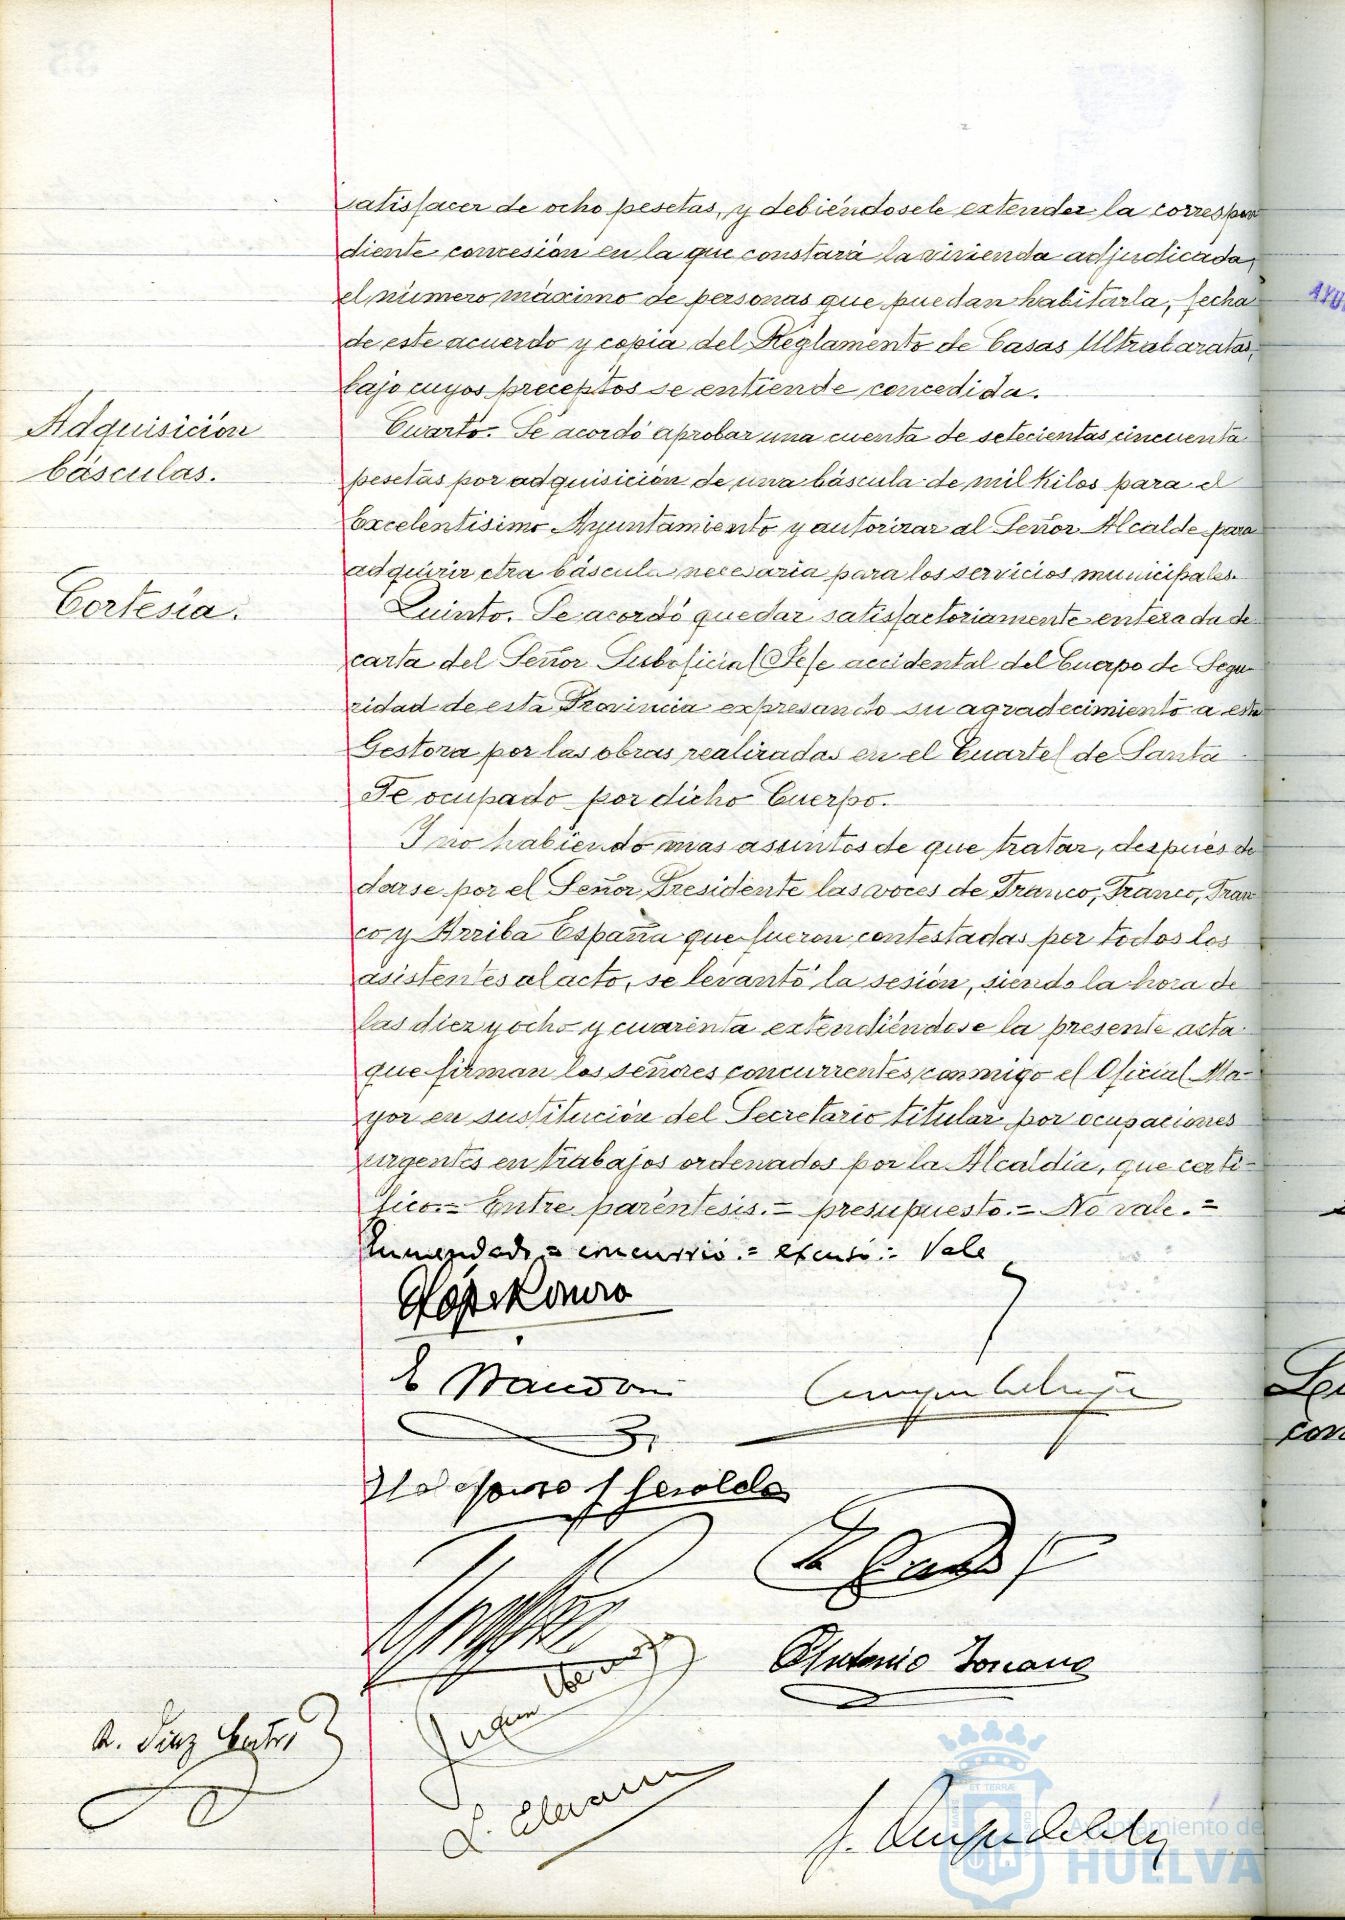 satisfacer de ocho pesetas, y debiéndosele extender la correspon
diente concesión en la que constará la vivienda adjudicada,
el número máximo de personas que puedan habitarla, fecha
de este acuerdo y copia del Reglamento de Casas Ultrabaratas,
bajo cuyos preceptos se entiende concedida.
Adquisición
básculas.
Cuarto. Se acordó aprobar una cuenta de setecientas cincuenta
pesetas por adquisición de una báscula de mil kilos para el
Excelentísimo Ayuntamiento y autorizar al Señor Alcalde para
adquirir otra báscula necesaria para los servicios municipales.
Cortesía.
Quinto. Se acordó quedar satisfactoriamente enterada de
carta del Señor Suboficial Jefe accidental del Cuerpo de Segu-
ridad de esta Provincia expresando su agradecimiento a esta
Gestora por las obras realizadas en el Cuartel de Santa
Fe ocupado por dicho Cuerpo.
Y no habiendo mas asuntos de que tratar, después de
darse por el Señor Presidente las voces de Franco, Franco, Fran
co y Arriba España que fueron contestadas por todos los
asistentes al acto, se levantó la sesión, siendo la hora de
las diez y ocho y cuarenta extendiéndose la presente acta
que firman los señores concurrentes conmigo el Oficial Ma-
yor en sustitución del Secretario titular por ocupaciones
urgentes en trabajos ordenados por la Alcaldía, que certi-
fico.= Entre paréntesis.= presupuesto.= No vale.=
Enmendado = concurrió.= excusó.= Vale
López Romero
Antonio Toscano
R. Diaz Castro
ET TERRÆ
Ayuntamiento de
HUELVA
AYU
con